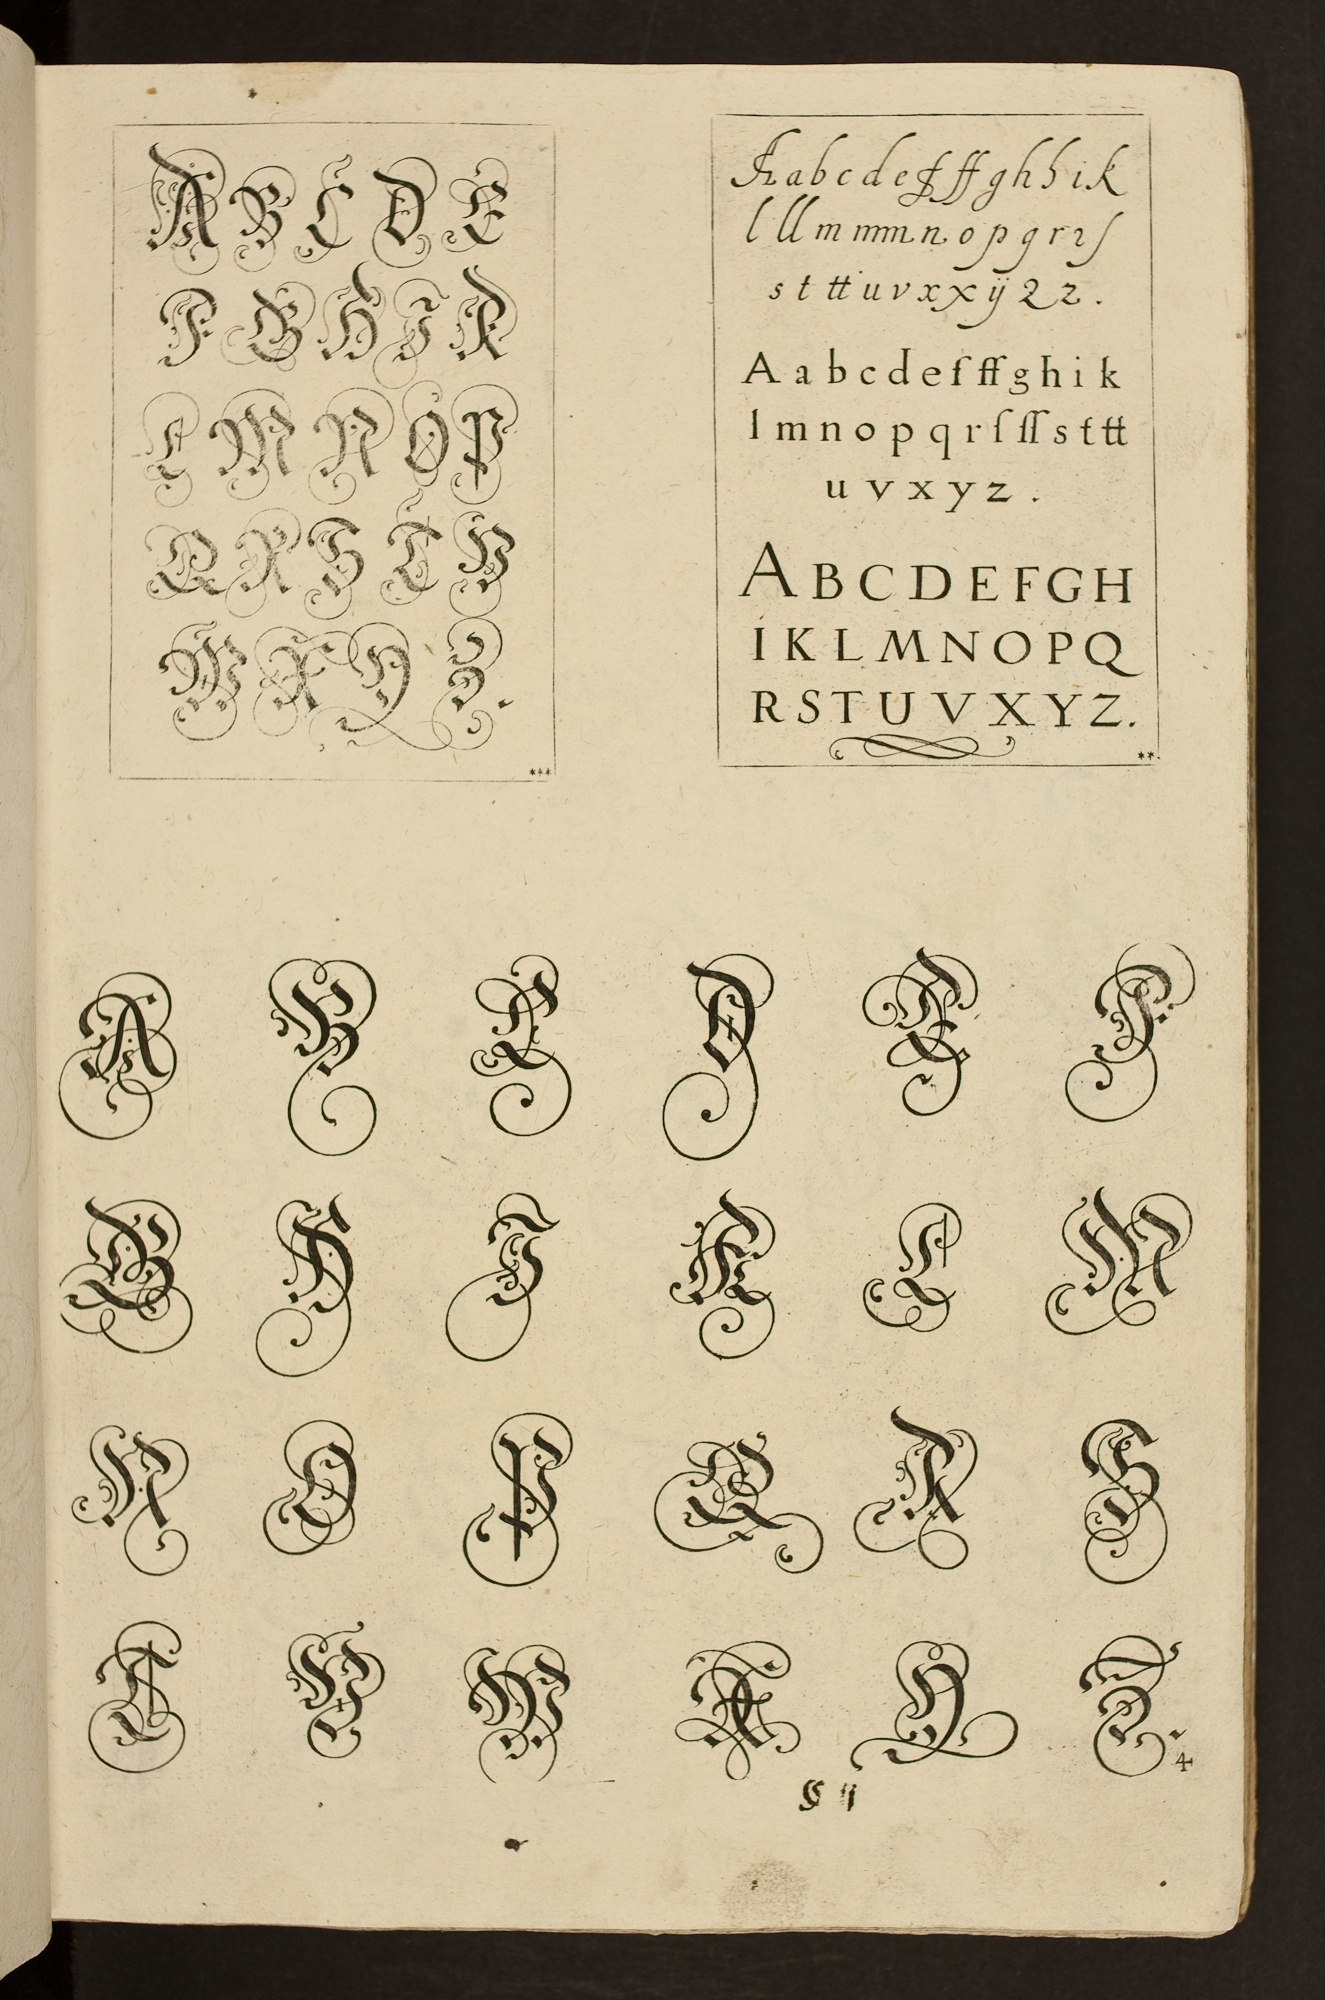 A B C D E
F G H I K
L M N O P
Q R S T V
W X Y Z.
***
A a b c d e f ff g h h i k
l ll m m m n o p q r ꝛ ſ
s t tt u v x x ij 2 z .
A a b c d e f ff g h i k
l m n o p q r ſ ſſ s t tt
u v x y z .
A B C D E F G H
I K L M N O P Q
R S T U V X Y Z.
**.
A B C D E F
G H I K L M
N O P Q R S
T V W X Y Z.
4
§ ij